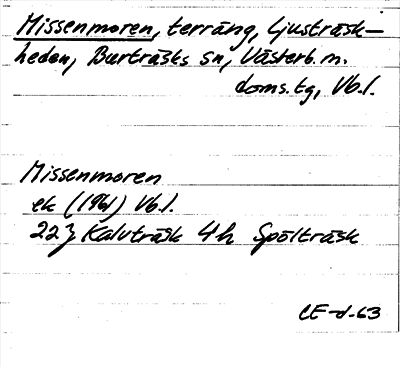 Missenmoren, terräng, Ljusträsk-
heden, Burträsks sn, Västerb. m.
doms. tg, Vb.l.
Missenmoren
ek (1961) Vb.l.
22J Kalvträsk 4h Spölträsk
CE-d-63